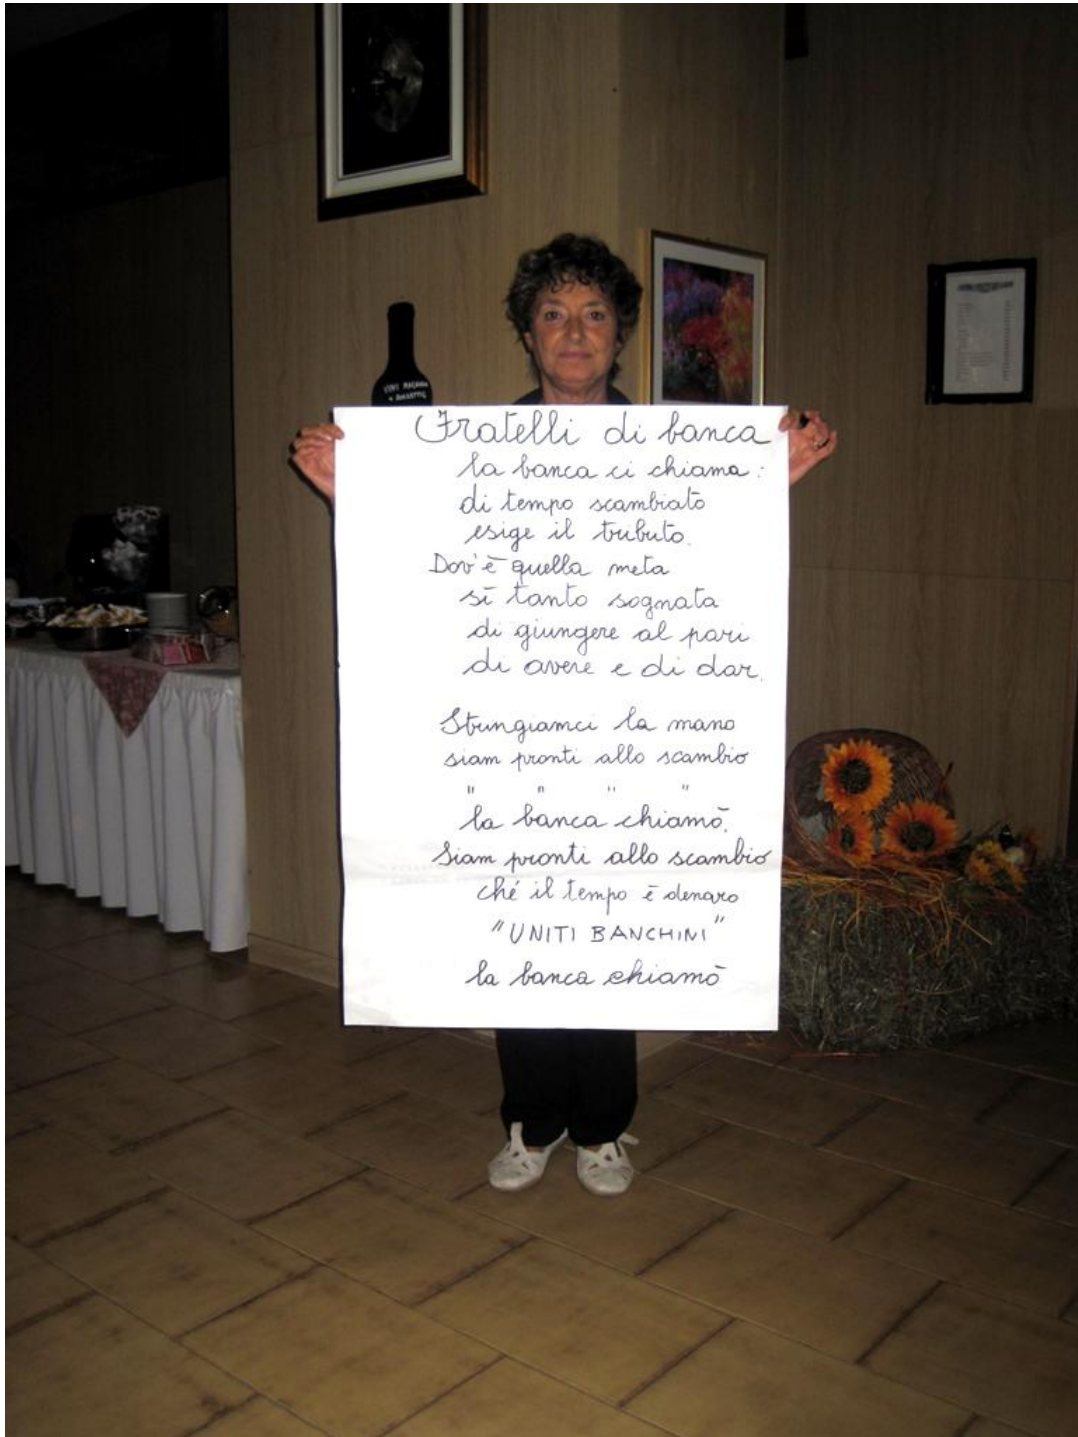 Fratelli di banca
la banca ci chiama :
di tempo scambiato
esige il tributo.
Dov'è quella meta
sì tanto sognata
di giungere al pari
di avere e di dar.
Stringiamci la mano
siam pronti allo scambio
" " " "
la banca chiamò.
Siam pronti allo scambio
ché il tempo è denaro
"UNITI BANCHINI"
la banca chiamò